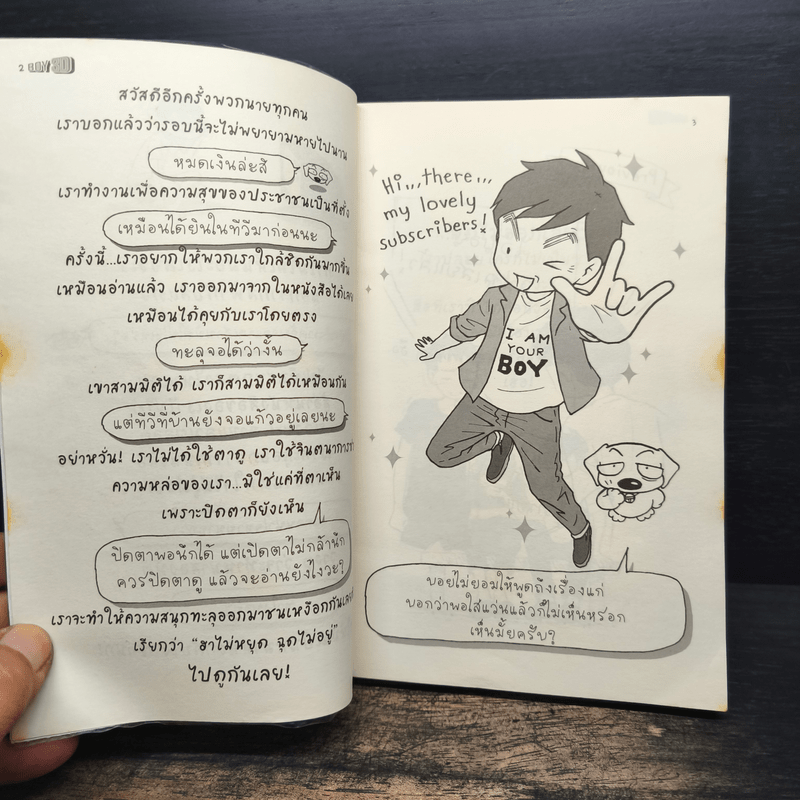 2 BOY 3D
สวัสดีอีกครั้งพวกนายทุกคน
เราบอกแล้วว่ารอบนี้จะไม่พยายามหายไปนาน
หมดเงินล่ะสิ
เราทำงานเพื่อความสุขของประชาชนเป็นที่ตั้ง
เหมือนได้ยินในทีวีมาก่อนนะ
ครั้งนี้...เราอยากให้พวกเราใกล้ชิดกันมากขึ้น
เหมือนอ่านแล้ว เราออกมาจากในหนังสือได้เลย
เหมือนได้คุยกับเราโดยตรง
ทะลุจอได้ว่างั้น
เขาสามมิติได้ เราก็สามมิติได้เหมือนกัน
แต่ทีวีที่บ้านยังจอแก้วอยู่เลยนะ
อย่าหวั่น! เราไม่ได้ใช้ตาดู เราใช้จินตนาการ
ความหล่อของเรา...มิใช่แค่ที่ตาเห็น
เพราะปิดตาก็ยังเห็น
ปิดตาพอนึกได้ แต่เปิดตาไม่กล้านึก
ควรปิดตาดู แล้วจะอ่านยังไงวะ?
เราจะทำให้ความสนุกทะลุออกมาชนเหงือกกันเลย
เรียกว่า “ฮาไม่หยุด ฉุดไม่อยู่”
ไปดูกันเลย!
3
Hi,,,there,,,
my lovely
subscribers!
I AM
YOUR
BOY
บอยไม่ยอมให้พูดถึงเรื่องแก่
บอกว่าพอใส่แว่นแล้วก็ไม่เห็นหรอก
เห็นมั้ยครับ?